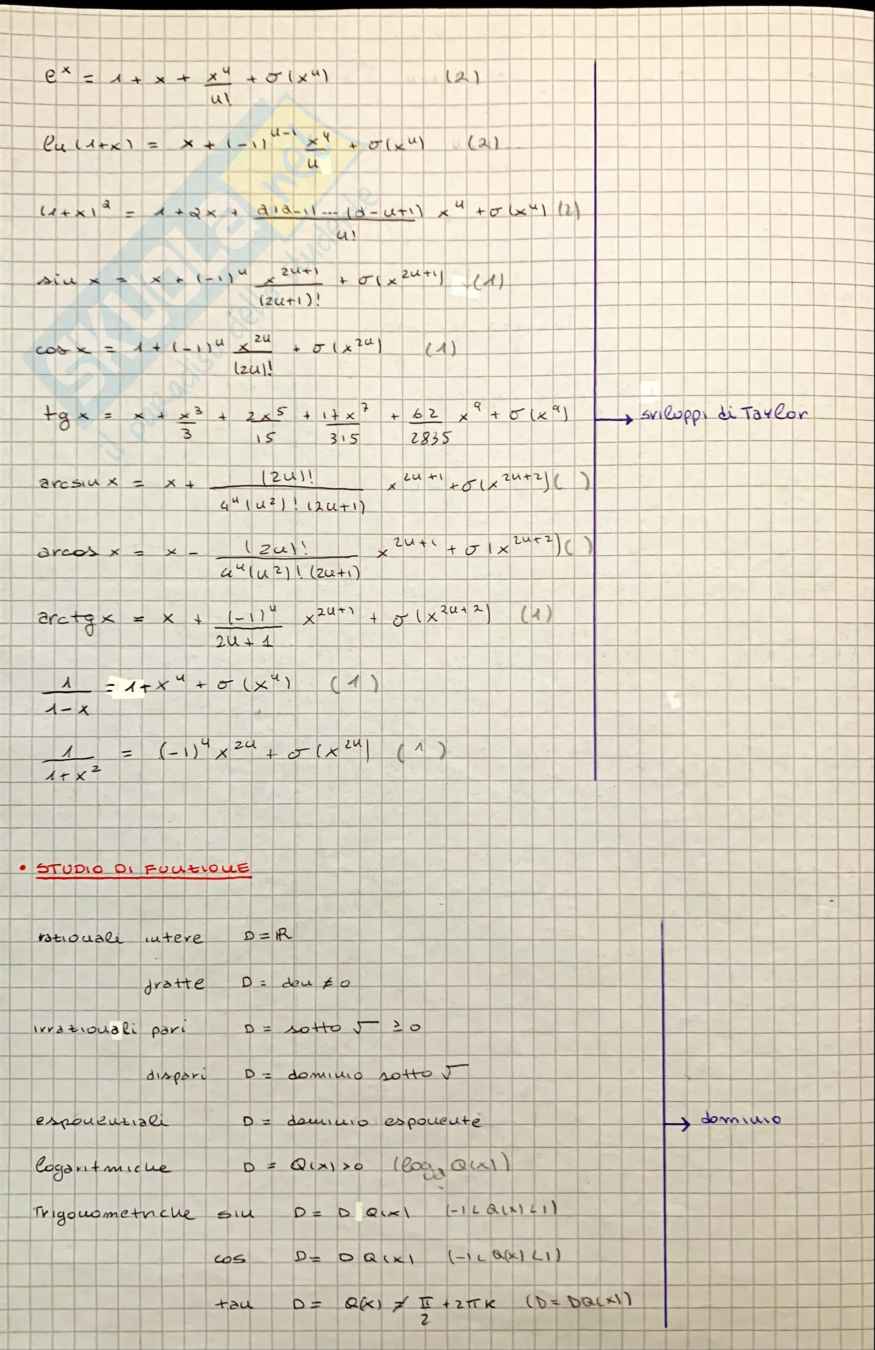 e^x = 1 + x + x^n/n! + σ(x^n) (2)
ln(1+x) = x + (-1)^(n-1) x^n/n + σ(x^n) (2)
(1+x)^α = 1 + αx + α(α-1)...(α-n+1)/n! x^n + σ(x^n) (2)
sin x = x + (-1)^n x^(2n+1)/(2n+1)! + σ(x^(2n+1)) (1)
cos x = 1 + (-1)^n x^(2n)/(2n)! + σ(x^(2n)) (1)
tg x = x + x^3/3 + 2x^5/15 + 17x^7/315 + 62/2835 x^9 + σ(x^9) → sviluppi di Taylor
arcsin x = x + (2n)!/(4^n(n^2)!(2n+1)) x^(2n+1) + σ(x^(2n+2)) ( )
arcos x = x - (2n)!/(4^n(n^2)!(2n+1)) x^(2n+1) + σ(x^(2n+2)) ( )
arctg x = x + (-1)^n/(2n+1) x^(2n+1) + σ(x^(2n+2)) (1)
1/(1-x) = 1 + x^n + σ(x^n) (1)
1/(1+x^2) = (-1)^n x^(2n) + σ(x^(2n)) (1)
• STUDIO DI FUNZIONE
razionali intere D = ℝ
fratte D = den ≠ 0
irrazionali pari D = sotto √ ≥ 0
dispari D = dominio sotto √
esponenziali D = dominio esponente → dominio
logaritmiche D = Q(x) > 0 (log Q(x))
Trigonometriche sin D = D Q(x) (-1 < Q(x) < 1)
cos D = D Q(x) (-1 < Q(x) < 1)
tan D = Q(x) ≠ π/2 + 2πk (D = DQ(x))
SKUOLA.net
il paradiso dello studente